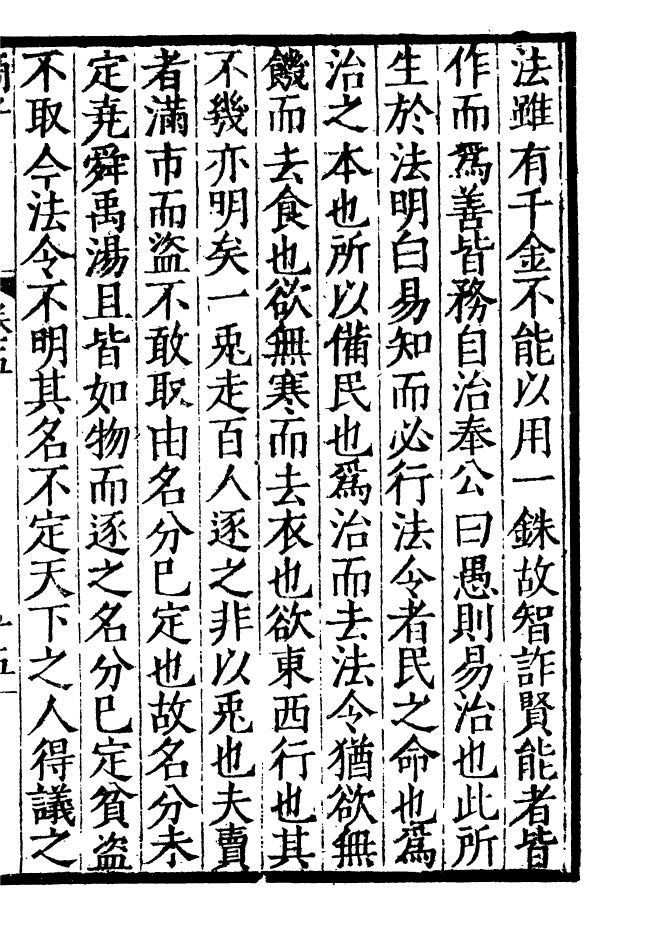 法雖有千金不能以用一銖故智詐賢能者皆
作而爲善皆務自治奉公曰愚則易治也此所
生於法明白易知而必行法令者民之命也爲
治之本也所以備民也爲治而去法令猶欲無
饑而去食也欲無寒而去衣也欲東西行也其
不幾亦明矣一兎走百人逐之非以兎也夫賣
者滿市而盜不敢取由名分已定也故名分未
定堯舜禹湯且皆如物而逐之名分已定貧盜
不取今法令不明其名不定天下之人得議之